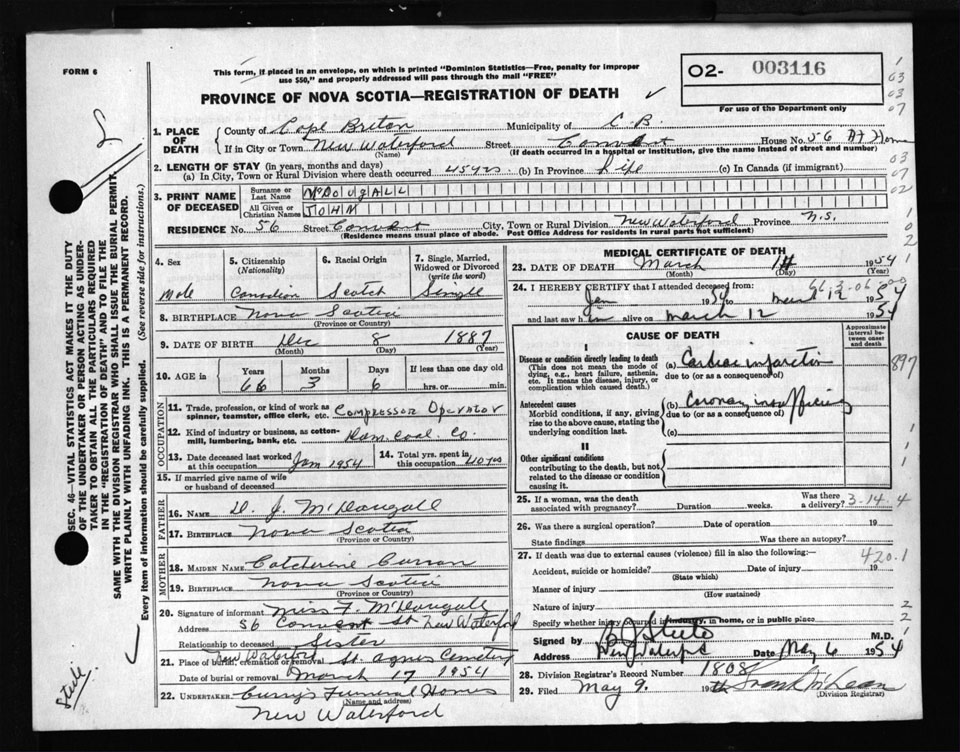 FORM 6
This form, if placed in an envelope, on which is printed "Dominion Statistics—Free, penalty for improper
use $50," and properly addressed will pass through the mail "FREE"
PROVINCE OF NOVA SCOTIA—REGISTRATION OF DEATH
02- 003116
For use of the Department only
1. PLACE OF DEATH
County of Cape Breton Municipality of C.B.
If in City or Town New Waterford Street Convent House No. 56 At Home
(Name) (If death occurred in a hospital or institution, give the name instead of street and number)
2. LENGTH OF STAY (in years, months and days)
(a) In City, Town or Rural Division where death occurred 45 yrs. (b) In Province Life (c) In Canada (if immigrant)
3. PRINT NAME OF DECEASED
Surname or Last Name McDOUGALL
All Given or Christian Names JOHN
RESIDENCE No. 56 Street Convent City, Town or Rural Division New Waterford Province N.S.
(Residence means usual place of abode. Post Office Address for residents in rural parts not sufficient)
4. Sex
Male
5. Citizenship (Nationality)
Canadian
6. Racial Origin
Scotch
7. Single, Married, Widowed or Divorced (write the word)
Single
8. BIRTHPLACE Nova Scotia
(Province or Country)
9. DATE OF BIRTH Dec 8 1887
(Month) (Day) (Year)
10. AGE in Years Months Days If less than one day old
66 3 6 hrs. or min.
OCCUPATION
11. Trade, profession, or kind of work as spinner, teamster, office clerk, etc. Compressor Operator
12. Kind of industry or business, as cotton-mill, lumbering, bank, etc. Dom. Coal Co.
13. Date deceased last worked at this occupation Jan 1954
14. Total yrs. spent in this occupation 40 yrs
15. If married give name of wife or husband of deceased
FATHER
16. NAME D. J. McDougall
17. BIRTHPLACE Nova Scotia
(Province or Country)
MOTHER
18. MAIDEN NAME Catherine Curran
19. BIRTHPLACE Nova Scotia
(Province or Country)
20. Signature of informant Miss F. McDougall
Address 56 Convent St New Waterford
Relationship to deceased Sister
21. Place of burial, cremation or removal New Waterford St. Agnes Cemetery
Date of burial or removal March 17 1954
22. UNDERTAKER Curry's Funeral Homes
(Name and address)
New Waterford
MEDICAL CERTIFICATE OF DEATH
23. DATE OF DEATH March 14 1954
(Month) (Day) (Year)
24. I HEREBY CERTIFY that I attended deceased from:
Jan 1954 to 12 1954
and last saw h alive on March 12 1954
CAUSE OF DEATH
Approximate interval between onset and death
I
Disease or condition directly leading to death
(This does not mean the mode of dying, e.g., heart failure, asthenia, etc. It means the disease, injury, or complication which caused death.)
(a) Cardiac infarction
due to (or as a consequence of)
Antecedent causes
Morbid conditions, if any, giving rise to the above cause, stating the underlying condition last.
(b) Coronary insufficiency
due to (or as a consequence of)
(c)
II
Other significant conditions
contributing to the death, but not related to the disease or condition causing it.
25. If a woman, was the death associated with pregnancy? Duration weeks. Was there a delivery?
3-14.4
26. Was there a surgical operation? Date of operation 19
State findings Was there an autopsy?
27. If death was due to external causes (violence) fill in also the following:—
420.1
Accident, suicide or homicide? Date of injury 19
(State which)
Manner of injury
(How sustained)
Nature of injury
Specify whether injury occurred in industry, in home, or in public place
Signed by Steele M.D.
Address New Waterford Date May 6 1954
28. Division Registrar's Record Number 1808
29. Filed May 9. 19 Frank McLean
(Division Registrar)
SEC. 46—VITAL STATISTICS ACT MAKES IT THE DUTY
OF THE UNDERTAKER OR PERSON ACTING AS UNDER-
TAKER TO OBTAIN ALL THE PARTICULARS REQUIRED
IN THE "REGISTRATION OF DEATH" AND TO FILE THE
SAME WITH THE DIVISION REGISTRAR WHO SHALL ISSUE THE BURIAL PERMIT.
WRITE PLAINLY WITH UNFADING INK. THIS IS A PERMANENT RECORD.
Every item of information should be carefully supplied. (See reverse side for instructions.)
Steele
897